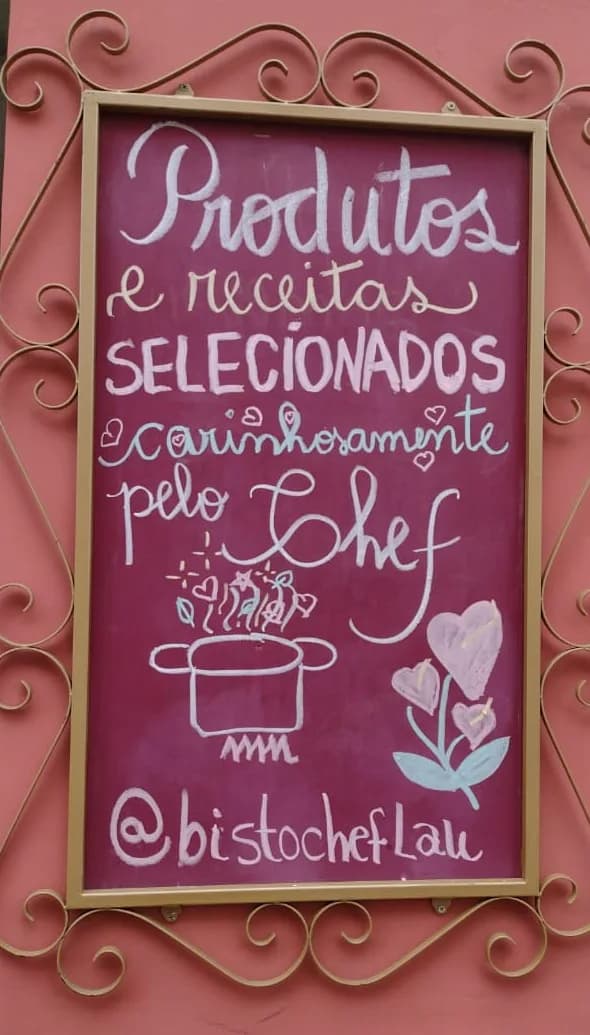 Produtos
e receitas
SELECIONADOS
carinhosamente
pelo Chef
@bistochefLau